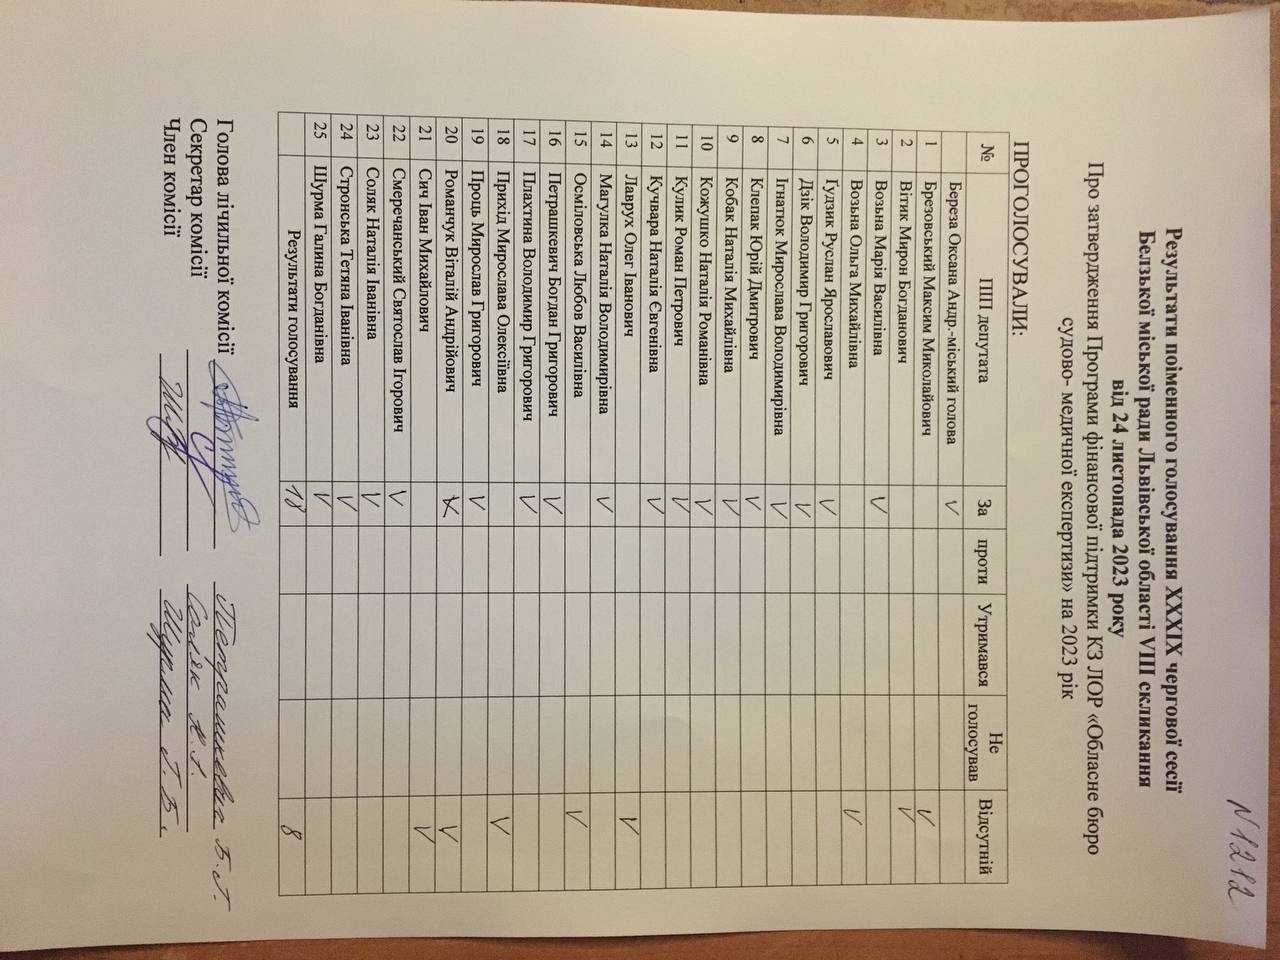 N1212
Результати поіменного голосування XXXIX чергової сесії
Белзької міської ради Львівської області VIII скликання
від 24 листопада 2023 року
Про затвердження Програми фінансової підтримки КЗ ЛОР «Обласне бюро
судово- медичної експертизи» на 2023 рік
ПРОГОЛОСУВАЛИ:
№ ПІП депутата За проти Утримався Не голосував Відсутній
Береза Оксана Андр.-міський голова V
1 Брезовський Максим Миколайович V
2 Вітик Мирон Богданович V
3 Возьна Марія Василівна V
4 Возьна Ольга Михайлівна V
5 Гудзик Руслан Ярославович V
6 Дзік Володимир Григорович V
7 Ігнатюк Мирослава Володимирівна V
8 Клепак Юрій Дмитрович V
9 Кобак Наталія Михайлівна V
10 Кожушко Наталія Романівна V
11 Кулик Роман Петрович V
12 Кучвара Наталія Євгенівна V
13 Лаврух Олег Іванович V
14 Магулка Наталія Володимирівна V
15 Осміловська Любов Василівна V
16 Петрашкевич Богдан Григорович V
17 Плахтина Володимир Григорович V
18 Прихід Мирослава Олексіївна V
19 Проць Мирослав Григорович V
20 Романчук Віталій Андрійович V
21 Сич Іван Михайлович V
22 Смеречанський Святослав Ігорович V
23 Соляк Наталія Іванівна V
24 Стронська Тетяна Іванівна V
25 Шурма Галина Богданівна V
Результати голосування 18 8
Голова лічильної комісії Петрашкевич Б.Г.
Секретар комісії Соляк Н.І.
Член комісії Шурма Г.Б.